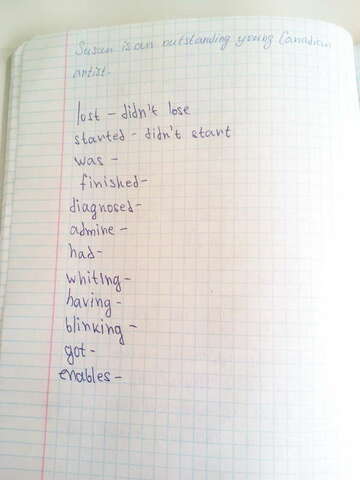 Susan is an outstanding young Canadian
artist.
lost - didn't lose
started - didn't start
was -
finished-
diagnosed-
admine -
had-
whiting-
having-
blinking -
got-
enables -